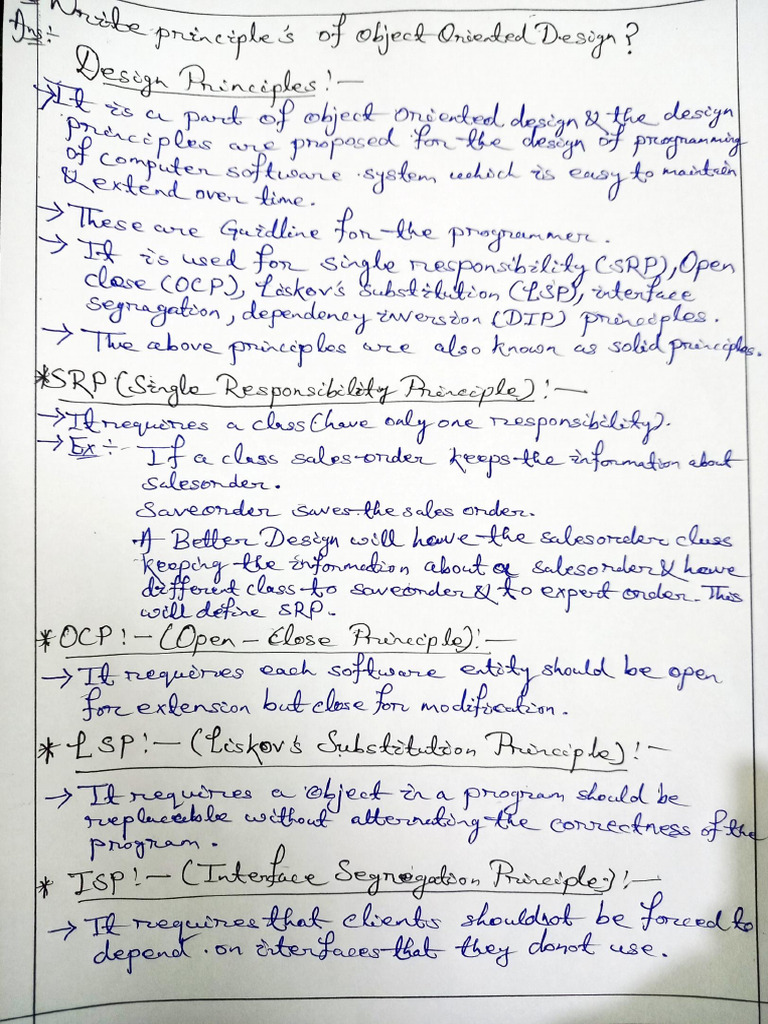 Write principle's of object Oriented Design?
Ans:-
Design Principles:-
→ It is a part of object oriented design & the design
principles are proposed for the design of programming
of computer software system which is easy to maintain
& extend over time.
→ These are Guidline for the programmer.
→ It is used for single responsibility (SRP), Open
close (OCP), Liskov's substitution (LSP), interface
segragation, dependency inversion (DIP) principles.
→ The above principles are also known as solid principles.
* SRP (Single Responsibility Principle):-
→ It requires a class (have only one responsibility).
→ Ex:- If a class sales-order keeps the information about
salesorder.
Saveorder saves the sales order.
A Better Design will have the salesorder class
keeping the information about a salesorder & have
different class to saveorder & to expert order. This
will define SRP.
* OCP:- (Open-Close Principle):-
→ It requires each software entity should be open
for extension but close for modification.
* LSP:- (Liskov's Substitution Principle):-
→ It requires a object in a program should be
replaceable without alternating the correctness of the
program.
* ISP:- (Interface Segregation Principle):-
→ It requires that clients should not be forced to
depend on interfaces that they donot use.